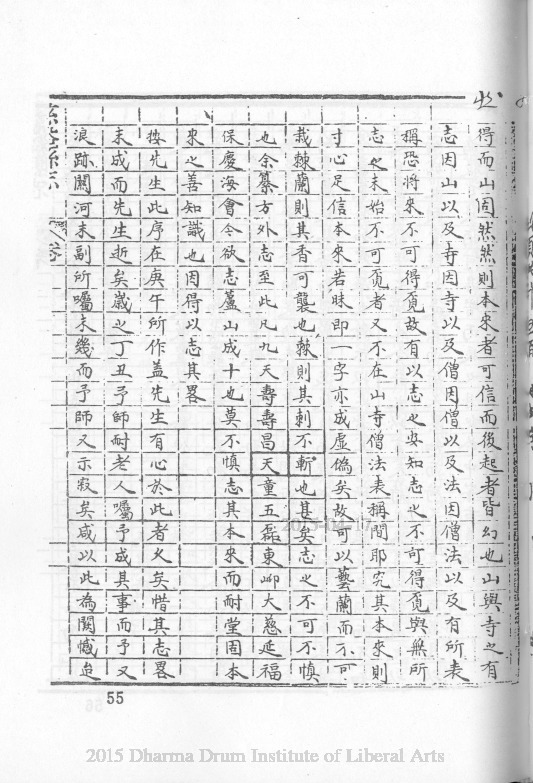 得而山固然然則本來者可信而後起者皆幻也山與寺之有
志因山以及寺因寺以及僧因僧以及法因僧法以及有所表
稱恐將來不可得覓故有以志之安知志之不可得覓與無所
志之未始不可覓者又不在山寺僧法表稱間耶究其本來則
寸心足信本來若昧即一字亦成虛偽矣故可以藝蘭而不可
栽棘蘭則其香可襲也棘則其刺不斬也甚矣志之不可不慎
也余纂方外志至此凡九天壽壽昌天童五磊東岫大慈延福
保慶海會今欲志蘆山成十也莫不慎志其本來而耐堂固本
來之善知識也因得以志其畧
按先生此序在庚午所作蓋先生有心於此者久矣惜其志畧
未成而先生逝矣歲之丁丑予師耐老人囑予成其事而予又
浪跡關河未副所囑未幾而予師又示寂矣咸以此為闕憾迨
55
2015 Dharma Drum Institute of Liberal Arts